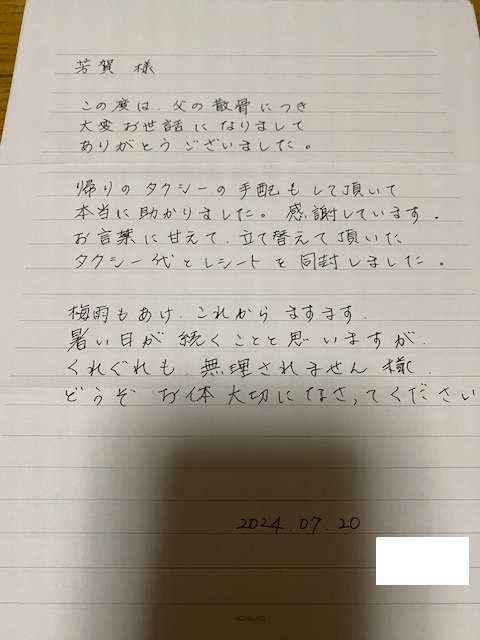 芳賀 様
この度は、父の散骨につき
大変お世話になりまして
ありがとうございました。
帰りのタクシーの手配もして頂いて
本当に助かりました。感謝しています。
お言葉に甘えて、立て替えて頂いた
タクシー代とレシートを同封しました。
梅雨もあけ、これからますます、
暑い日が続くことと思いますが、
くれぐれも、無理されません様に、
どうぞ お体大切になさってください
2024.07.20
KOKUYO